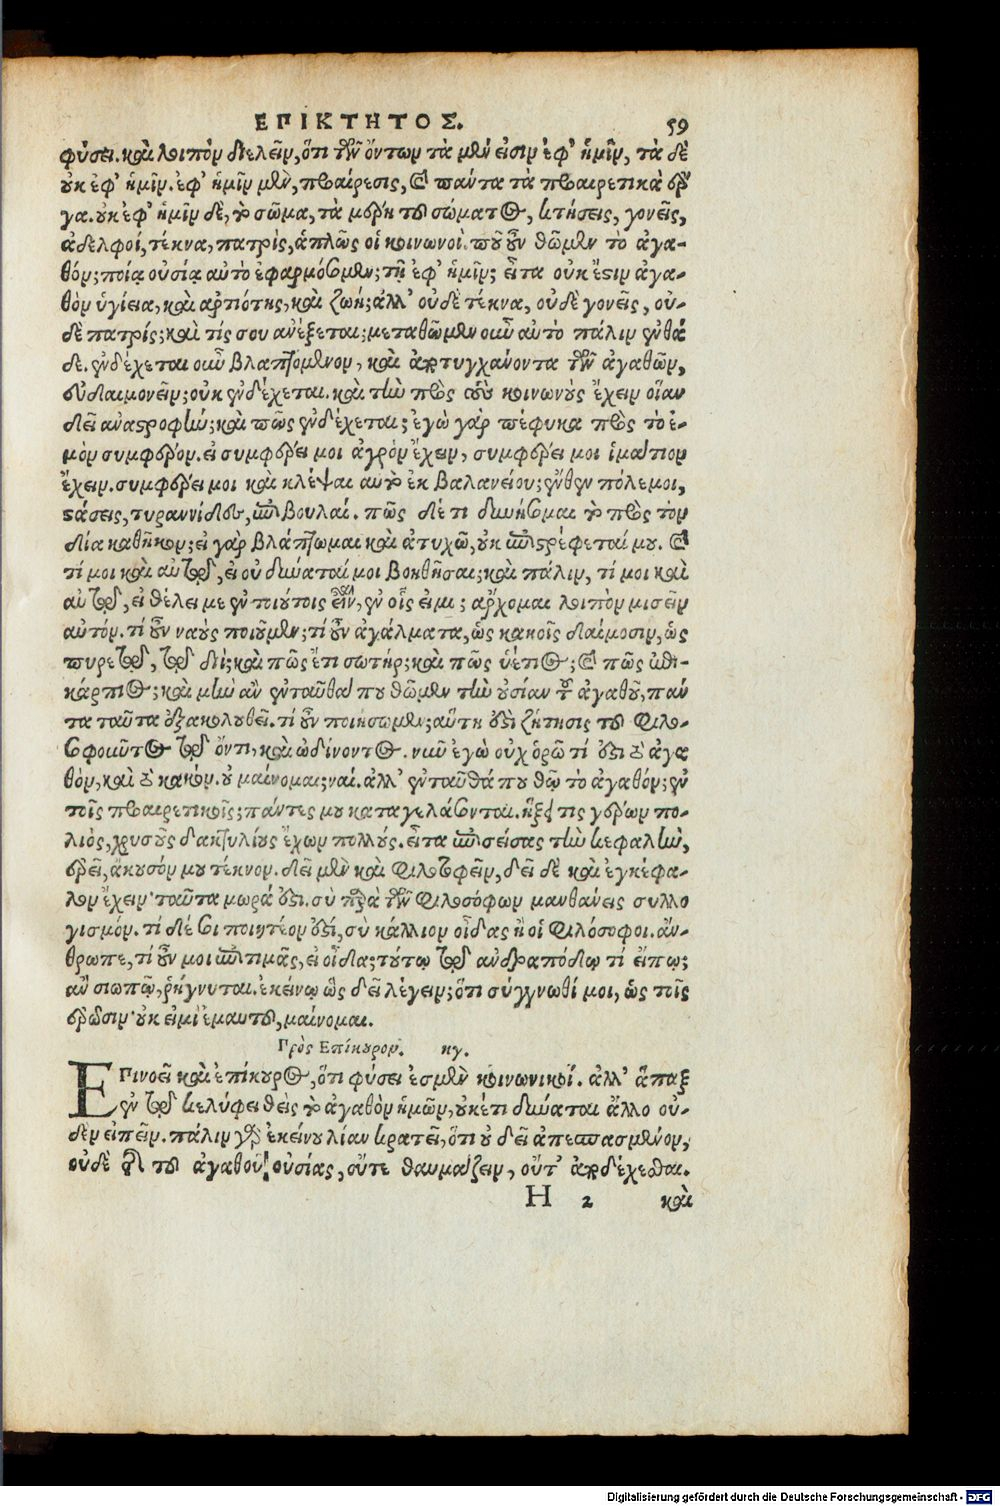 ΕΠΙΚΤΗΤΟΣ. 59
φύσει. καὶ λοιπὸν διελεῖν, ὅτι τῶν ὄντων τὰ μὲν εἰσιν ἐφ' ἡμῖν, τὰ δὲ
οὐκ ἐφ' ἡμῖν. ἐφ' ἡμῖν μὲν, προαίρεσις, καὶ πάντα τὰ προαιρετικὰ ἔρ
γα. οὐκ ἐφ' ἡμῖν δὲ, τὸ σῶμα, τὰ μέρη τοῦ σώματος, κτήσεις, γονεῖς,
ἀδελφοί, τέκνα, πατρὶς, ἁπλῶς οἱ κοινωνοί. ποῦ οὖν θῶμεν τὸ ἀγα-
θόν; ποίᾳ οὐσίᾳ αὐτὸ ἐφαρμόσομεν; τῇ ἐφ' ἡμῖν; εἶτα οὐκ ἔστιν ἀγα-
θὸν ὑγίεια, καὶ ἀρτιότης, καὶ ζωή; ἀλλ' οὐδὲ τέκνα, οὐδὲ γονεῖς, οὐ-
δὲ πατρίς; καὶ τίς σου ἀνέξεται; μεταθῶμεν οὖν αὐτὸ πάλιν ἐνθά
δε. ἐνδέχεται οὖν βλαπτόμενον, καὶ ἀποτυγχάνοντα τῶν ἀγαθῶν,
εὐδαιμονεῖν; οὐκ ἐνδέχεται. καὶ τὴν πρὸς τοὺς κοινωνοὺς ἔχειν οἵαν
δεῖ ἀναστροφήν; καὶ πῶς ἐνδέχεται; ἐγὼ γὰρ πέφυκα πρὸς τὸ ἐ-
μὸν συμφέρον. εἰ συμφέρει μοι ἀγρὸν ἔχειν, συμφέρει μοι ἱμάτιον
ἔχειν. συμφέρει μοι καὶ κλέψαι αὐτὸ ἐκ βαλανείου; ἔνθεν πόλεμοι,
στάσεις, τυραννίδες, ἐπιβουλαί. πῶς δέ τι δυνήσομαι τὸ πρὸς τὸν
Δία καθῆκον; εἰ γὰρ βλάπτωμαι καὶ ἀτυχῶ, οὐκ ἐπιστρέφεταί μου. καὶ
τί μοι καὶ αὐτῷ, εἰ οὐ δύναταί μοι βοηθῆσαι; καὶ πάλιν, τί μοι καὶ
αὐτῷ, εἰ θέλει με ἐν τοιούτοις εἶναι, ἐν οἷς εἰμι; ἄρχομαι λοιπὸν μισεῖν
αὐτόν. τί οὖν ναοὺς ποιοῦμεν; τί οὖν ἀγάλματα, ὡς κακοῖς δαίμοσιν, ὡς
πυρετῷ, τῷ Διΐ; καὶ πῶς ἔτι σωτήρ; καὶ πῶς ὑέτιος; καὶ πῶς ἐπι-
κάρπιος; καὶ μὴν ἂν ἐνταῦθά που θῶμεν τὴν οὐσίαν τοῦ ἀγαθοῦ, πάν
τα ταῦτα ἐξακολουθεῖ. τί οὖν ποιήσωμεν; αὕτη ἐστὶ ζήτησις τοῦ φιλο-
σοφοῦντος τῷ ὄντι, καὶ ὠδίνοντος. νῦν ἐγὼ οὐχ ὁρῶ τί ἐστι τὸ ἀγα
θὸν, καὶ τὸ κακόν. οὐ μαίνομαι; ναί. ἀλλ' ἐνταῦθά που θῶ τὸ ἀγαθόν; ἐν
τοῖς προαιρετικοῖς; πάντες μου καταγελάσονται. ἥξει τις γέρων πο-
λιὸς, χρυσοῦς δακτυλίους ἔχων πολλούς. εἶτα ἐπισείσας τὴν κεφαλὴν,
ἐρεῖ, ἄκουσόν μου τέκνον. δεῖ μὲν καὶ φιλοσοφεῖν, δεῖ δὲ καὶ ἐγκέφα-
λον ἔχειν· ταῦτα μωρά ἐστι. σὺ παρὰ τῶν φιλοσόφων μανθάνεις συλλο
γισμόν. τί δέ σοι ποιητέον ἐστί, σὺ κάλλιον οἶδας ἢ οἱ φιλόσοφοι. ἄν-
θρωπε, τί οὖν μοι ἐπιτιμᾷς, εἰ οἶδα; τούτῳ τῷ ἀνδραπόδῳ τί εἴπω;
ἂν σιωπῶ, ῥήγνυται. ἐκείνῳ ὡς δεῖ λέγειν; ὅτι σύγγνωθί μοι, ὡς τοῖς
ἐρῶσιν· οὐκ εἰμὶ ἐμαυτοῦ, μαίνομαι.
Πρὸς Ἐπίκουρον. κγ.
ΕΠινοεῖ καὶ ἐπίκουρος, ὅτι φύσει ἐσμὲν κοινωνικοί. ἀλλ' ἅπαξ
ἐν τῷ κελύφει θεὶς τὸ ἀγαθὸν ἡμῶν, οὐκέτι δύναται ἄλλο οὐ-
δὲν εἰπεῖν. πάλιν γὰρ ἐκείνου λίαν κρατεῖ, ὅτι οὐ δεῖ ἀπεσπασμένον,
οὐδὲν τῆς τοῦ ἀγαθοῦ οὐσίας, οὔτε θαυμάζειν, οὔτ' ἀποδέχεσθαι.
H 2 καὶ
Digitalisierung gefördert durch die Deutsche Forschungsgemeinschaft - DFG